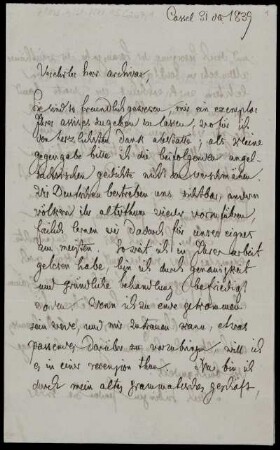 Cassel 31 oct 1839
Verehrter herr archivar,
Sie sind so freundlich gewesen, mir ein exemplar
Ihrer assises zugehen zu lassen, wofür ich
von herzlichsten dank erstatte; als kleine
gegengabe bitte ich die beifolgenden angel-
sächsischen gedichte nicht zu verschmähen.
Die Deutschen bestreben uns sichtbar, andern
völkern ihr alterthum wieder vorzuführen,
freilich lernen wir dadurch für unser eignes
am meisten. So weit ich in Ihrer arbeit
gelesen habe, bin ich durch genauigkeit
und gründliche behandlung befriedigt
worden. Wenn ich zu ende gekommen
sein werde, und mir zutrauen kann, etwas
passendes darüber zu vorzubringen will ich
es in einer recension thun. bin ich
durch mein altes grammatisches geschäft,